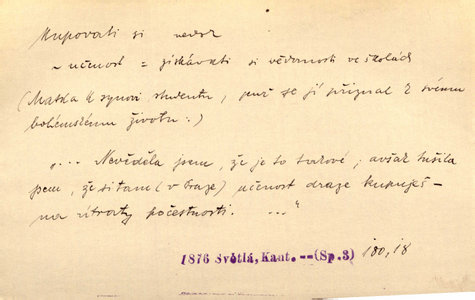 Kupovati si
~ učenost = získávati si vědomosti ve školách
(Matka k synovi studentu, jenž se jí přiznal k svému
bohémskému životu:)
„... Nevěděla jsem, že je to takové; avšak tušila
jsem, že si tam (v Praze) učenost draze kupuješ –
na útraty počestnosti. ..."
1876 Světlá, Kant. --(Sp.3) 180,18